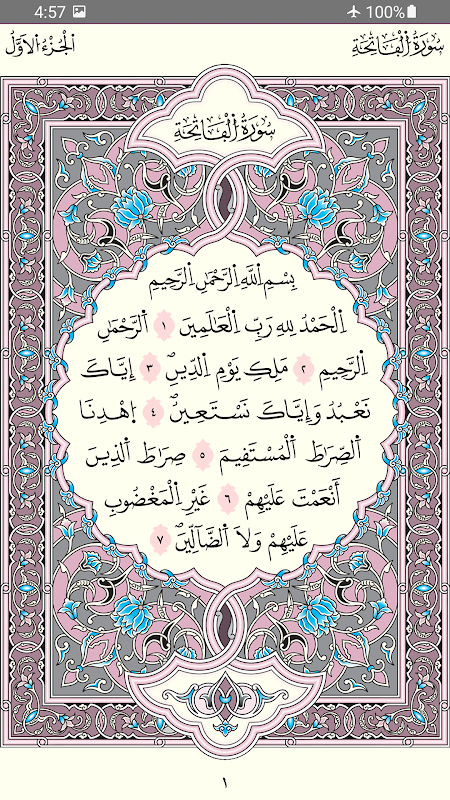 4:57 100%
سُورَةُ الْفَاتِحَةِ الْجُزْءُ الْأَوَّلُ
سُورَةُ الْفَاتِحَةِ
بِسْمِ اللَّهِ الرَّحْمَٰنِ الرَّحِيمِ
الْحَمْدُ لِلهِ رَبِّ الْعَالَمِينَ ١ الرَّحْمَٰنِ
الرَّحِيمِ ٢ مَلِكِ يَوْمِ الدِّينِ ٣ إِيَّاكَ
نَعْبُدُ وَإِيَّاكَ نَسْتَعِينُ ٤ اِهْدِنَا
الصِّرَاطَ الْمُسْتَقِيمَ ٥ صِرَاطَ الَّذِينَ
أَنْعَمْتَ عَلَيْهِمْ ٦ غَيْرِ الْمَغْضُوبِ
عَلَيْهِمْ وَلَا الضَّآلِّينَ ٧
١